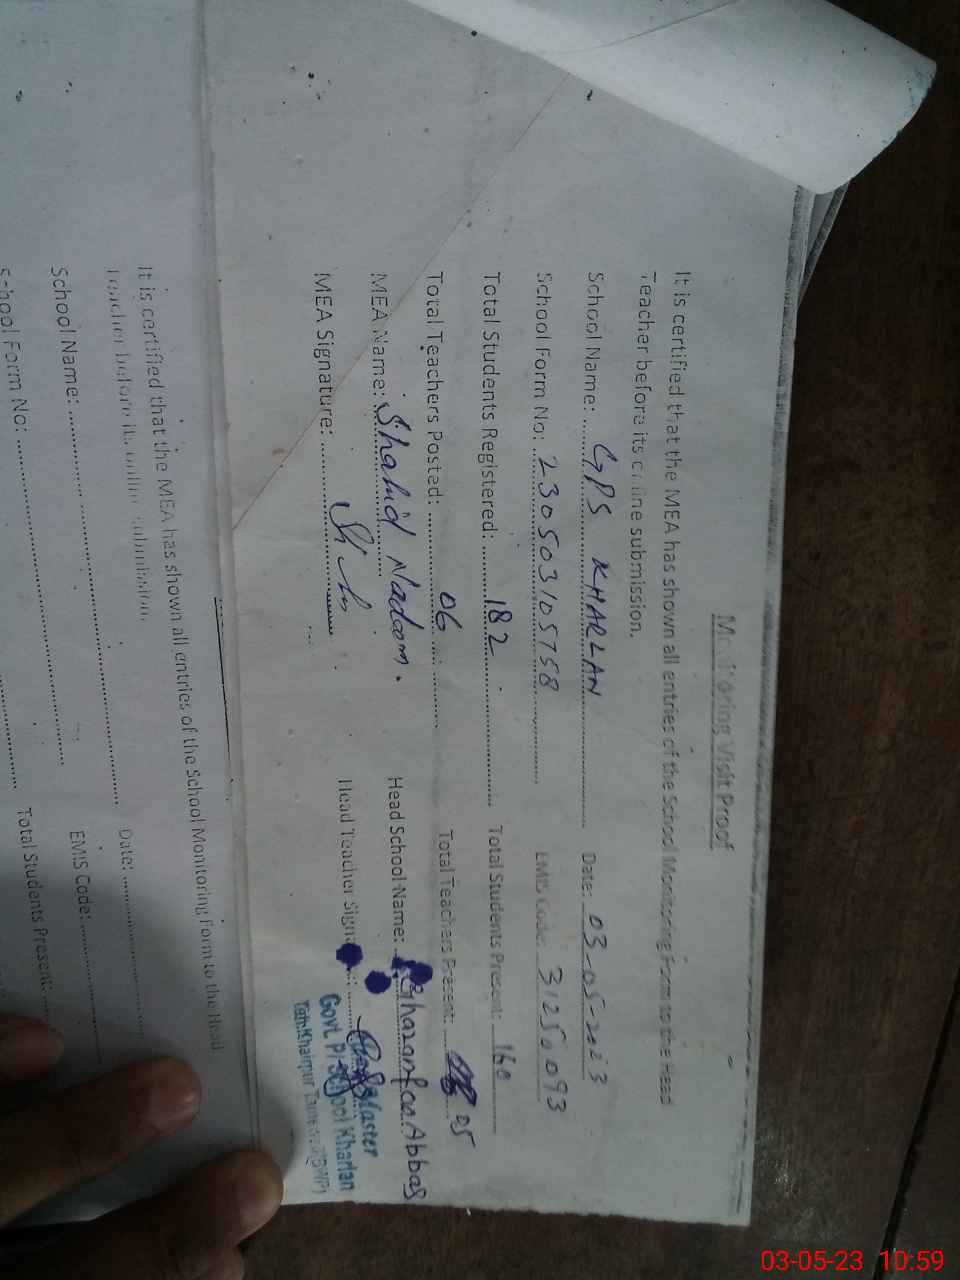 Monitoring Visit Proof
It is certified that the MEA has shown all entries of the School Monitoring Form to the Head
Teacher before its online submission.
School Name: GPS KHARLAN Date: 03-05-2023
School Form No: 2305031057 58 EMIS Code: 31250093
Total Students Registered: 182 Total Students Present: 160
Total Teachers Posted: 06 Total Teachers Present: 05
MEA Name: Shahid Nadeem. Head School Name: Ghazanfar Abbas
MEA Signature: Head Teacher Signature:
Master
Govt. P/School Kharlan
Teh: Khairpur Tamewali (BWP)
It is certified that the MEA has shown all entries of the School Monitoring Form to the Head
Teacher before its online submission.
School Name: Date:
School Form No: EMIS Code:
Total Students Present:
03-05-23 10:59